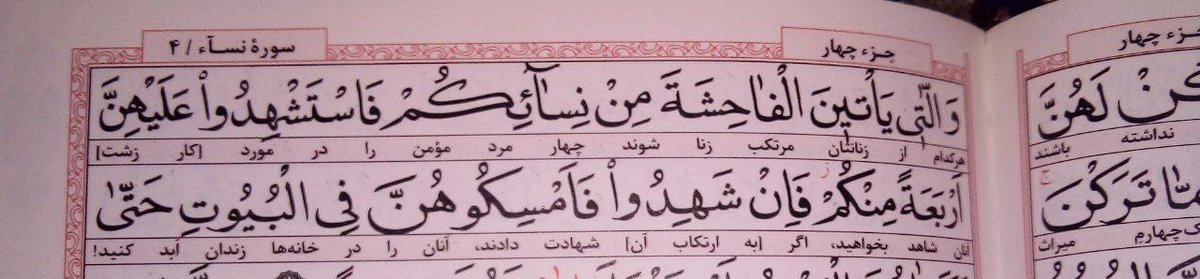 سورهٔ نسآء / ۴
جزء چهار
وَالّٰتی یَاْتینَ الْفٰاحِشَةَ مِنْ نِسٰٓائِکُمْ فَاسْتَشْهِدُواْ عَلَیْهِنَّ
هرکدام از زنانتان مرتکب زنا شوند چهار مرد مؤمن را در مورد [کار زشت]
اَرْبَعَةً مِنْکُمْ فَاِنْ شَهِدُواْ فَاَمْسِکُوهُنَّ فِی الْبُیُوتِ حَتّٰی
آنان شاهد بخواهید، اگر [به ارتکاب آن] شهادت دادند، آنان را در خانه‌ها زندان ابد کنید!
جزء چهار
لَهُنَّ
نداشته باشند
تَرَکْنَ
میراث